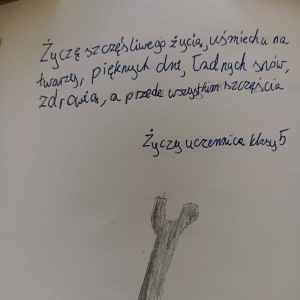 Życzę szczęśliwego życia, uśmiechu na
twarzy, pięknych dni, ładnych snów,
zdrowia, a przede wszystkim szczęścia
Życzy uczennica klasy 5